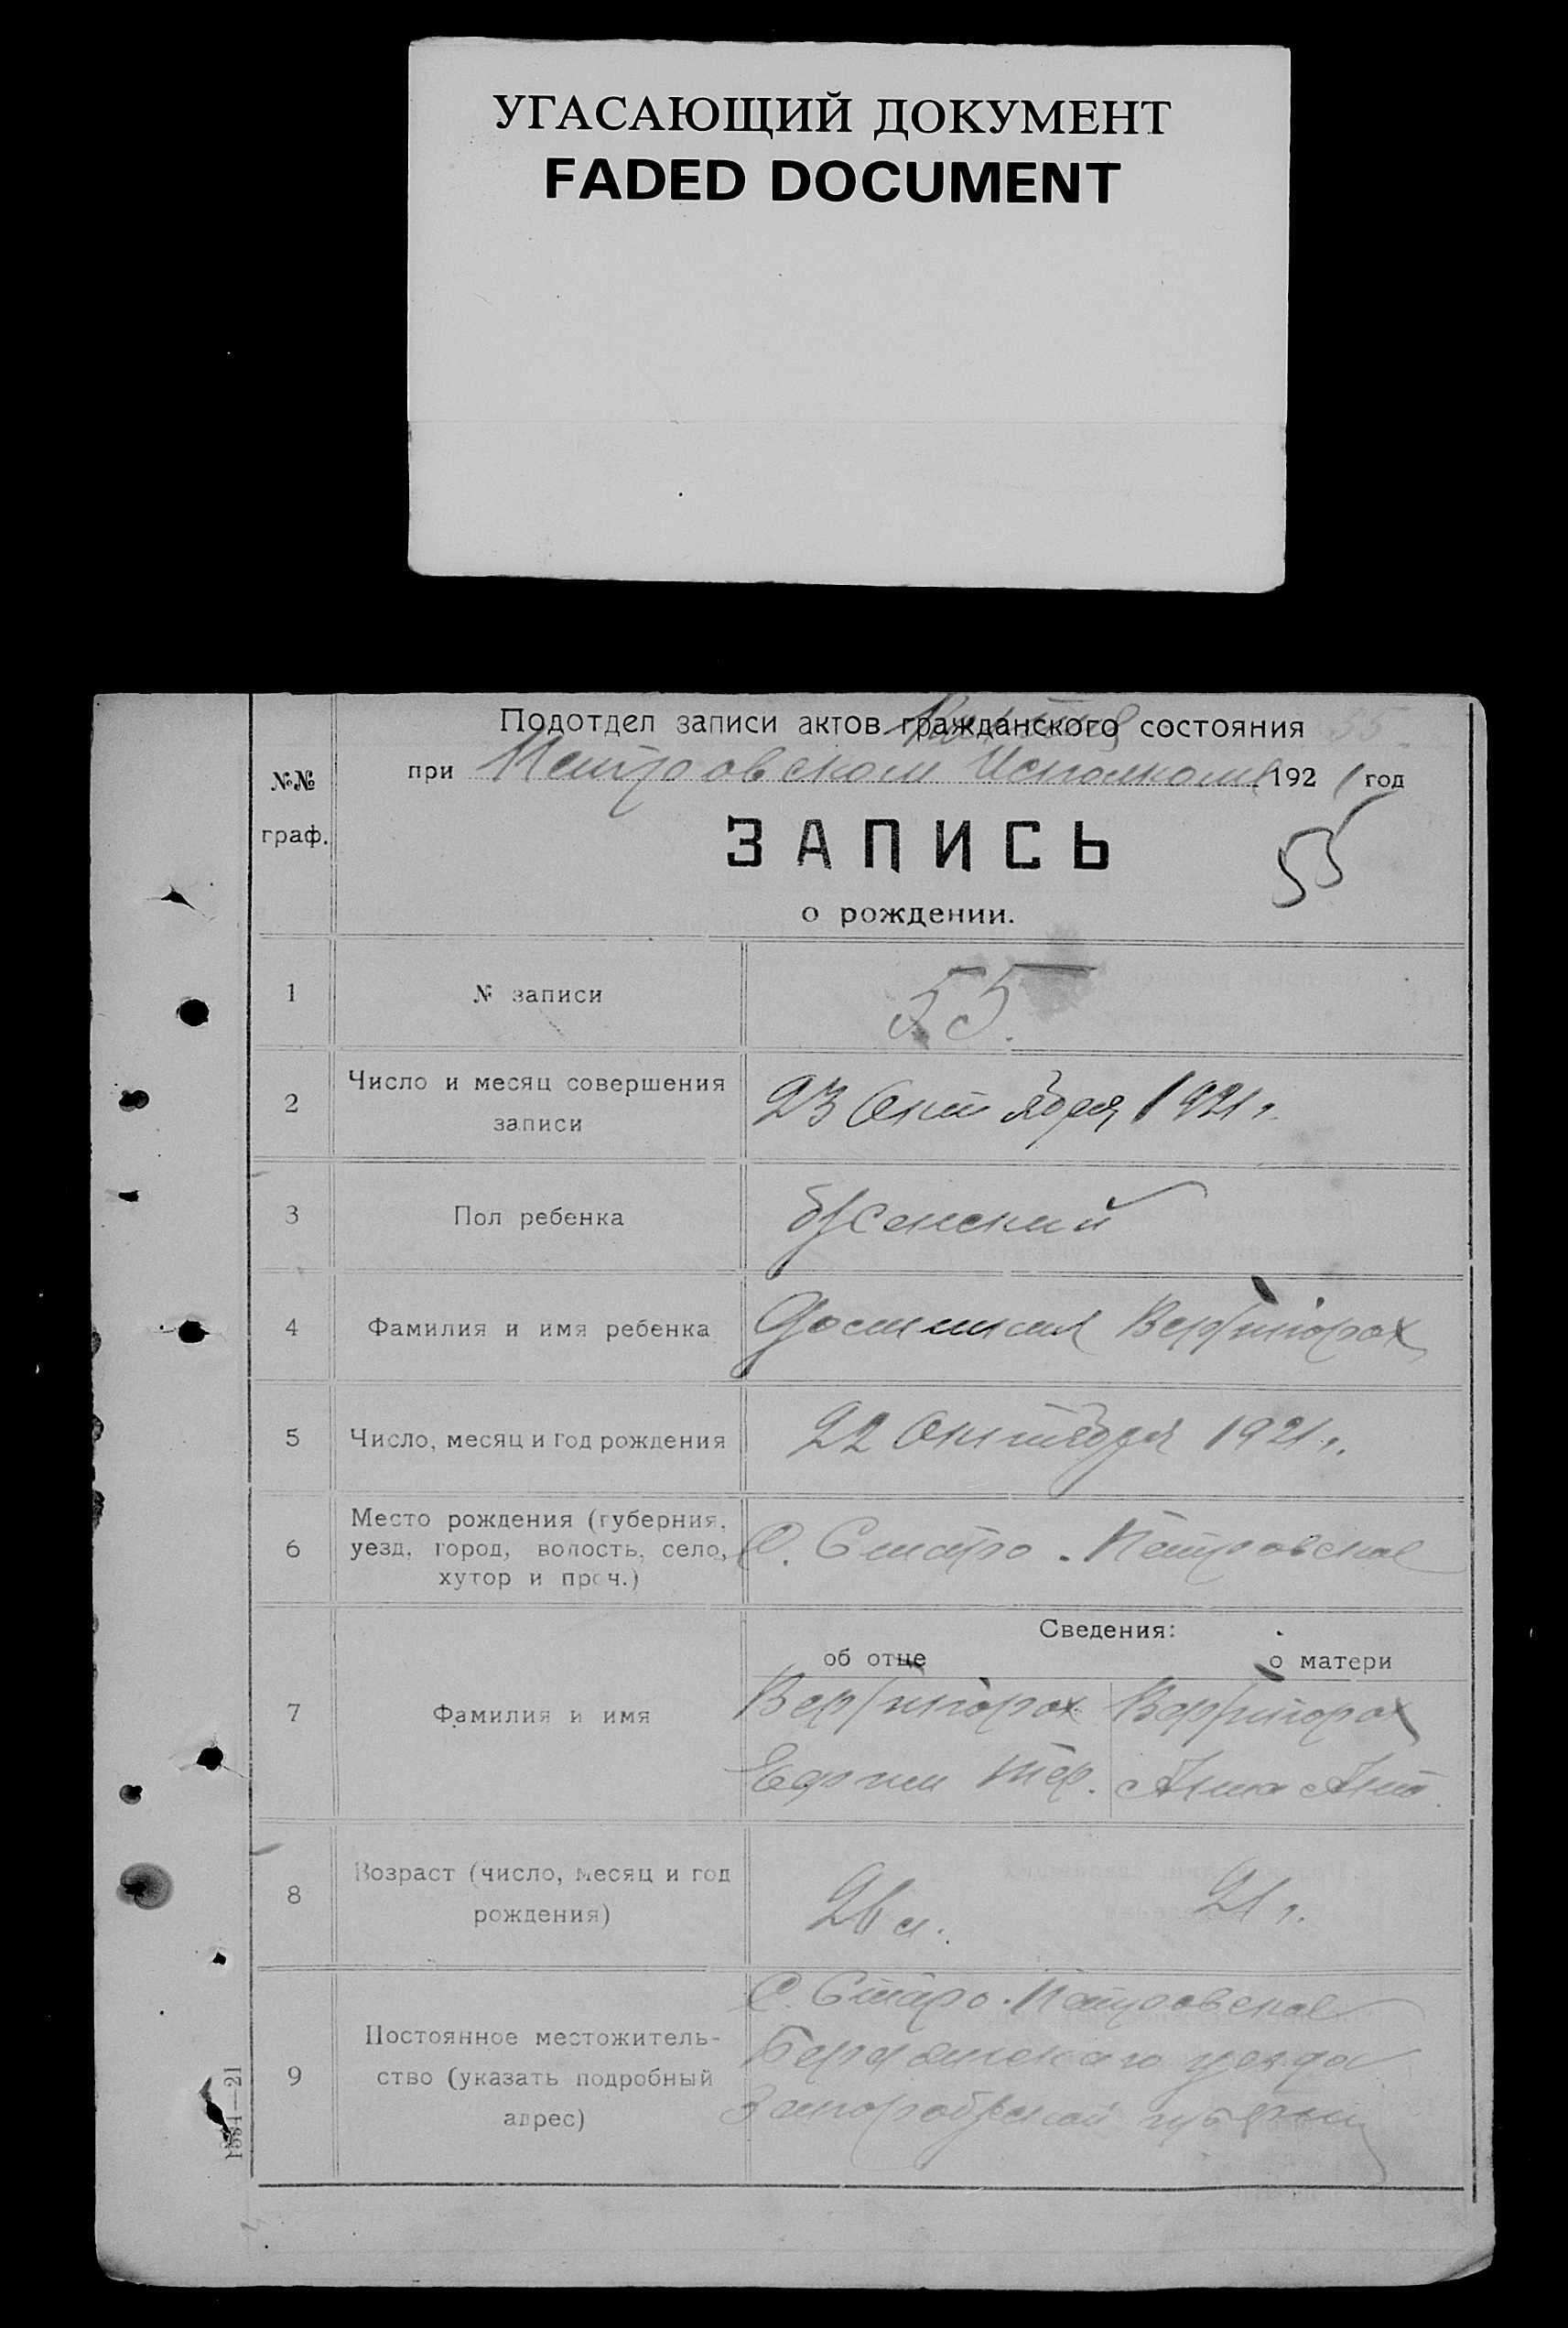 УГАСАЮЩИЙ ДОКУМЕНТ
FADED DOCUMENT
Подотдел записи актов гражданского состояния
55.
при Петровском Исполкоме 1921 год
№№
граф.
ЗАПИСЬ
55
о рождении.
1 № записи 55.
2 Число и месяц совершения
записи
23 Октября 1921 г.
3 Пол ребенка Женский
4 Фамилия и имя ребенка Вертипорох
5 Число, месяц и год рождения 22 Октября 1921 г.
6 Место рождения (губерния,
уезд, город, волость, село,
хутор и проч.)
С. Старо-Петровское
Сведения:
об отце о матери
7 Фамилия и имя
Вертипорох Вертипорох
Ефим Тер. Анна Ант.
8 Возраст (число, месяц и год
рождения)
26 л. 21 г.
9 Постоянное местожитель-
ство (указать подробный
адрес)
С. Старо-Петровское
Бердянского уезда
Запорожской губернии
1584—21